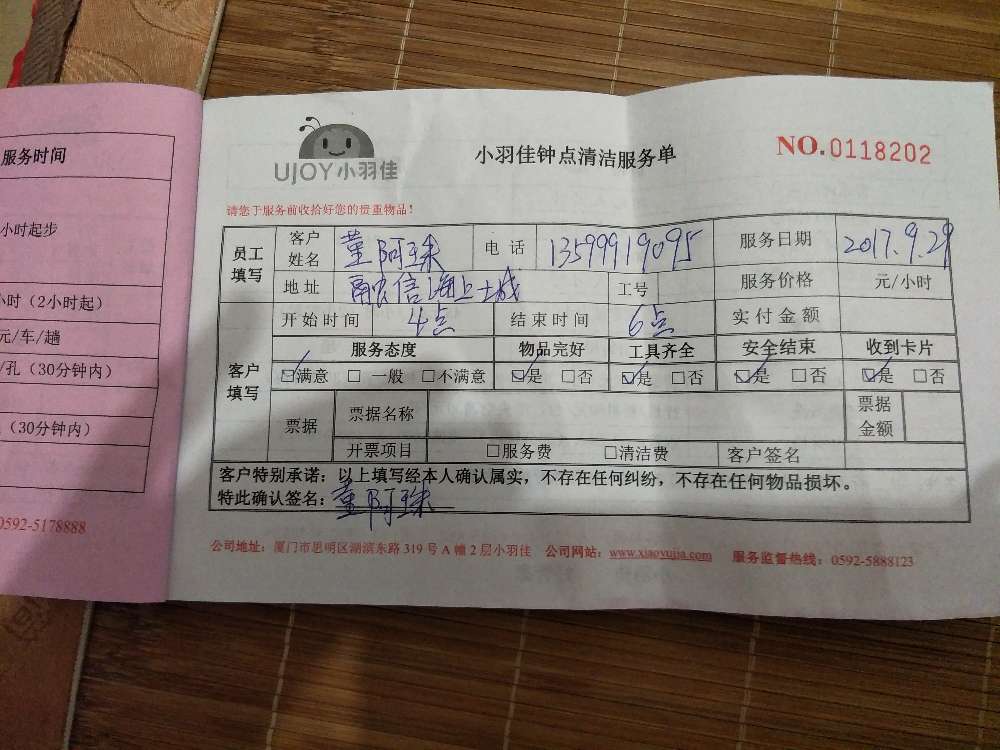 服务时间
小时起步
小时（2小时起）
元/车/趟
/孔（30分钟内）
（30分钟内）
0592-5178888
UJOY小羽佳
小羽佳钟点清洁服务单
NO.0118202
请您于服务前收拾好您的贵重物品！
员工填写 客户姓名 董阿珠 电话 13599919095 服务日期 2017.9.29
地址 融信海上城 工号 服务价格 元/小时
开始时间 4点 结束时间 6点 实付金额
客户填写 服务态度 物品完好 工具齐全 安全结束 收到卡片
☑满意 □一般 □不满意 ☑是 □否 ☑是 □否 ☑是 □否 ☑是 □否
票据 票据名称 票据金额
开票项目 □服务费 □清洁费 客户签名
客户特别承诺：以上填写经本人确认属实，不存在任何纠纷，不存在任何物品损坏。
特此确认签名：董阿珠
公司地址：厦门市思明区湖滨东路319号A幢2层小羽佳 公司网站：www.xiaoyujia.com 服务监督热线：0592-5888123